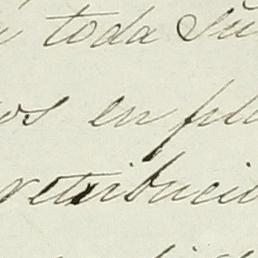 toda su
os en ple
retribuci